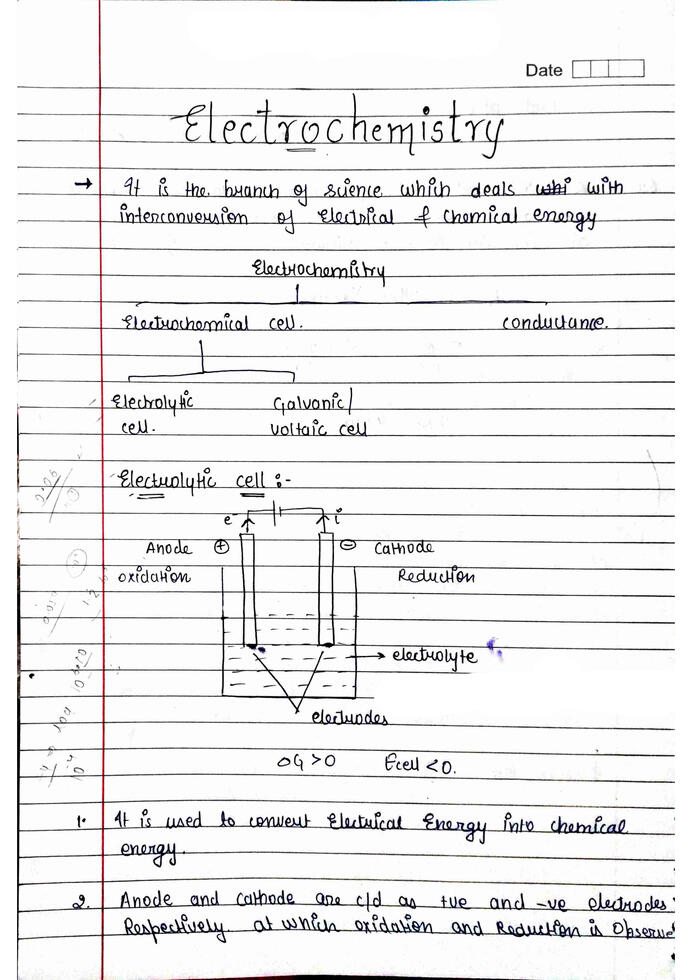 Date
Electrochemistry
→ It is the branch of science which deals whi with
interconversion of Electrical & chemical energy
Electrochemistry
Electrochemical cell. conductance.
Electrolytic Galvanic/
cell. voltaic cell
Electrolytic cell :-
e⁻ i
Anode ⊕ ⊖ Cathode
oxidation Reduction
→ electrolyte
electrodes
ΔG >0 Ecell <0.
1. It is used to convert Electrical Energy into chemical
energy.
2. Anode and cathode are c/d as +ve and -ve electrodes
Respectively. at which oxidation and Reduction is Observe